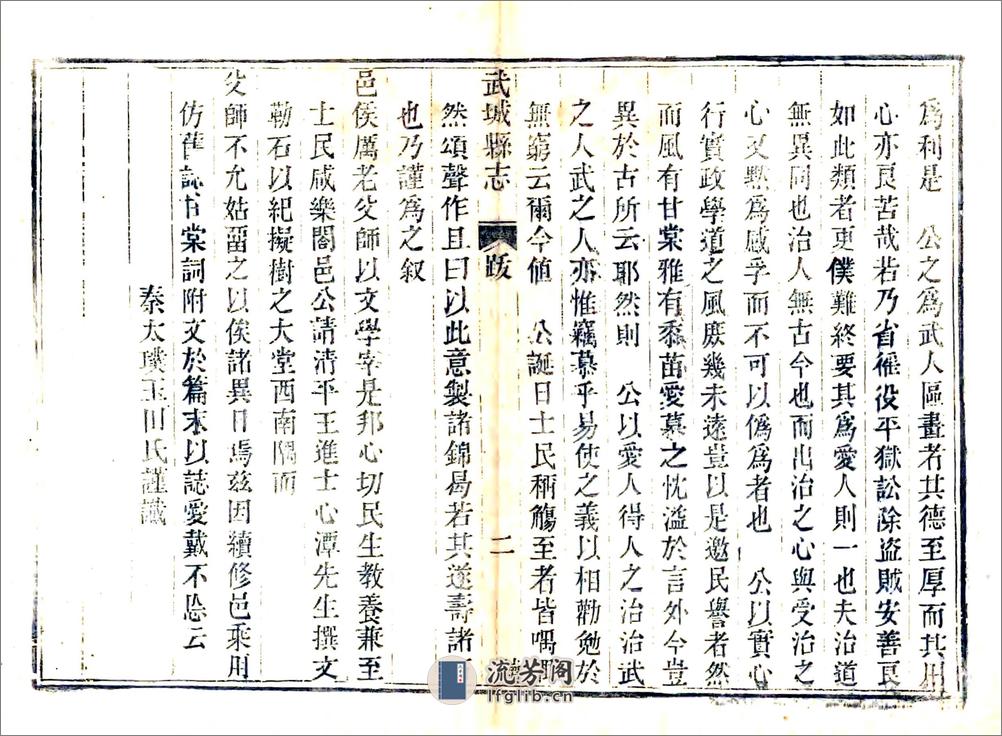 爲利是　公之爲武人區畫者其德至厚而其用
心亦良苦哉若乃省徭役平獄訟除盜賊安善良
如此類者更僕難終要其爲愛人則一也夫治道
無異同也治人無古今也而出治之心與受治之
心又黙爲感孚而不可以僞爲者也　公以實心
行實政學道之風庶幾未遠豈以是邀民譽者然
而風有甘棠雅有黍苗愛慕之忱溢於言外今豈
異於古所云耶然則　公以愛人得人之治治武
之人武之人亦惟竊慕乎易使之義以相勸勉於
無窮云爾今値　公誕日士民稱觴至者皆喁
武城縣志　跋　二
然頌聲作且曰以此意製諸錦曷若其遂壽諸
也乃謹爲之叙
邑侯厲老父師以文學宰是邦心切民生教養兼至
士民咸樂閤邑公請清平王進士心潭先生撰文
勒石以紀擬樹之大堂西南隅而
父師不允姑畱之以俟諸異日焉兹因續修邑乘用
仿舊誌甘棠詞附文於篇末以誌愛戴不忘云
秦太璞玉田氏謹識
流芳閣
lfglib.cn